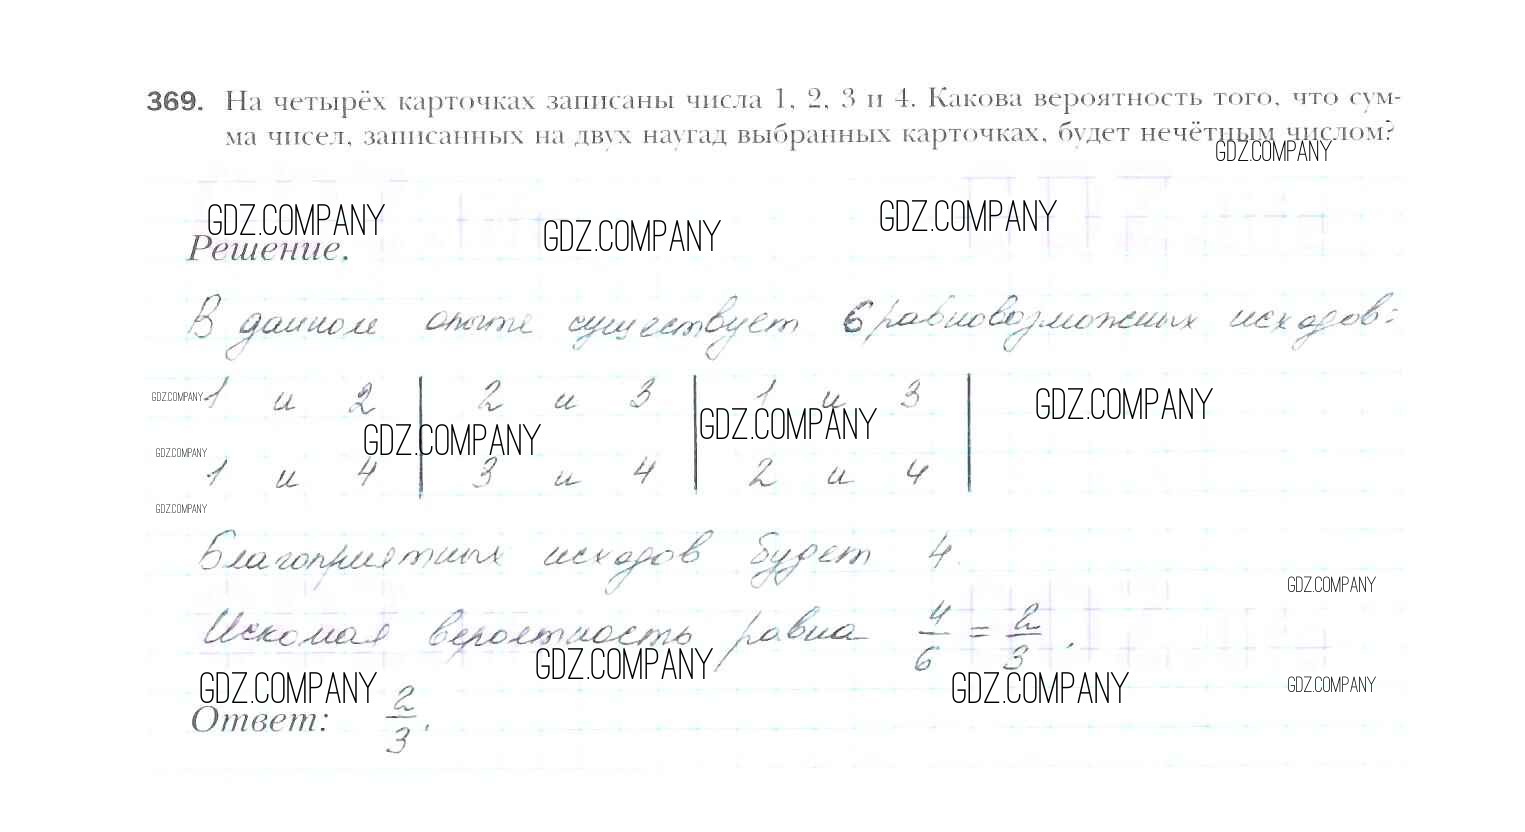 369. На четырёх карточках записаны числа 1, 2, 3 и 4. Какова вероятность того, что сум-
ма чисел, записанных на двух наугад выбранных карточках, будет нечётным числом?
GDZ.COMPANY
GDZ.COMPANY GDZ.COMPANY GDZ.COMPANY
Решение.
В данном опыте существует 6 равновозможных исходов:
GDZ.COMPANY 1 и 2 2 и 3 1 и 3 GDZ.COMPANY
GDZ.COMPANY GDZ.COMPANY
GDZ.COMPANY 1 и 4 3 и 4 2 и 4
GDZ.COMPANY
Благоприятных исходов будет 4.
GDZ.COMPANY
Искомая вероятность равна 4/6 = 2/3.
GDZ.COMPANY
GDZ.COMPANY GDZ.COMPANY GDZ.COMPANY
Ответ: 2/3.